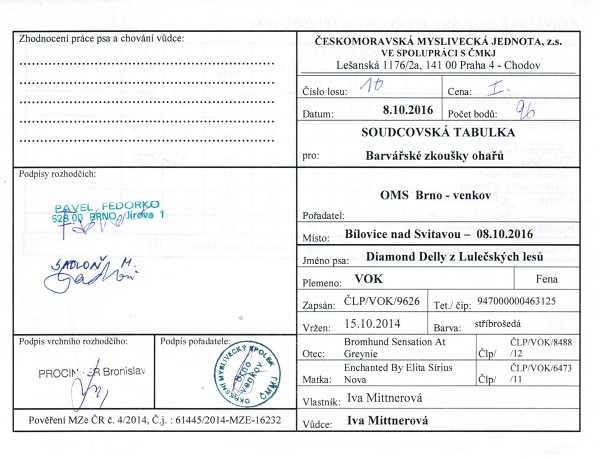 Zhodnocení práce psa a chování vůdce:
Podpisy rozhodčích:
PAVEL FEDORKO
628 00 BRNO, Jírova 1
SADLOŇ M.
Podpis vrchního rozhodčího:
Bronislav
Podpis pořadatele:
OKRESNÍ MYSLIVECKÝ SPOLEK
Brno
venkov
ČMMJ
Pověření MZe ČR č. 4/2014, Č.j. : 61445/2014-MZE-16232
ČESKOMORAVSKÁ MYSLIVECKÁ JEDNOTA, z.s.
VE SPOLUPRÁCI S ČMKJ
Lešanská 1176/2a, 141 00 Praha 4 - Chodov
Číslo losu: 10 Cena: I.
Datum: 8.10.2016 Počet bodů: 96
SOUDCOVSKÁ TABULKA
pro: Barvářské zkoušky ohařů
OMS Brno - venkov
Pořadatel:
Místo: Bílovice nad Svitavou – 08.10.2016
Jméno psa: Diamond Delly z Lulečských lesů
Plemeno: VOK Fena
Zapsán: ČLP/VOK/9626 Tet./ čip: 947000000463125
Vržen: 15.10.2014 Barva: stříbrošedá
Otec: Bromhund Sensation At Greynie Člp/ ČLP/VOK/8488 /12
Matka: Enchanted By Elita Sírius Nova Člp/ ČLP/VOK/6473 /11
Vlastník: Iva Mittnerová
Vůdce: Iva Mittnerová